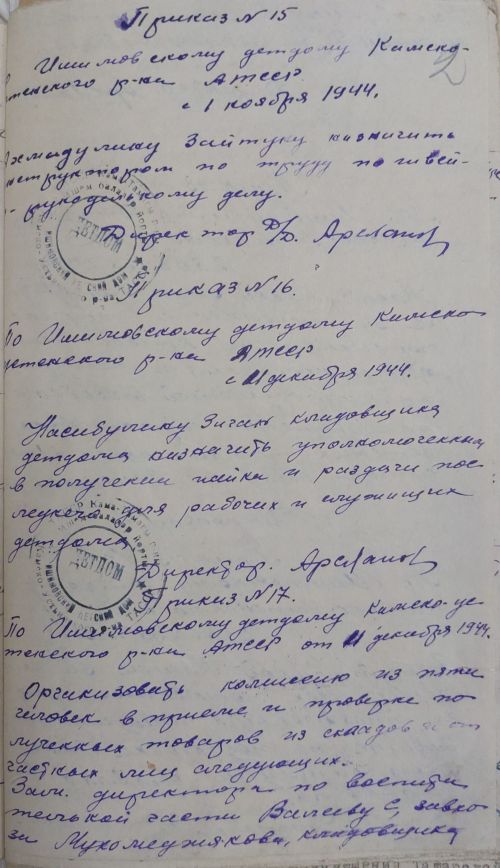 Приказ N 15
2
Ишимовскому детдому Камско-
устенского р-на АТССР
с 1 ноября 1944.
Ахмадулину Зайтуну назначить
инструктором по труду по швей-
рукодельному делу.
Директор д/д. Арсланов
ДЕТДОМ
Приказ N 16.
По Ишимовскому детдому Камско-
устенского р-на АТССР
с 11 декабря 1944.
Насибулину Зичан кладовщика
детдома назначить уполномоченным
в получении пайка и раздачи пос-
ледних для рабочих и служащих
детдома
Директор. Арсланов
ДЕТДОМ
Приказ N 17.
По Ишимовскому детдому Камско-ус-
тенского р-на АТССР от 11 декабря 1944.
Организовать комиссию из пяти
человек в приеме и проверке по-
лученных товаров из складов и от
частных лиц следующих.
Зам. директора по воспита
тельной части Валееву С, завхо-
за Мухомеджанова, кладовщика